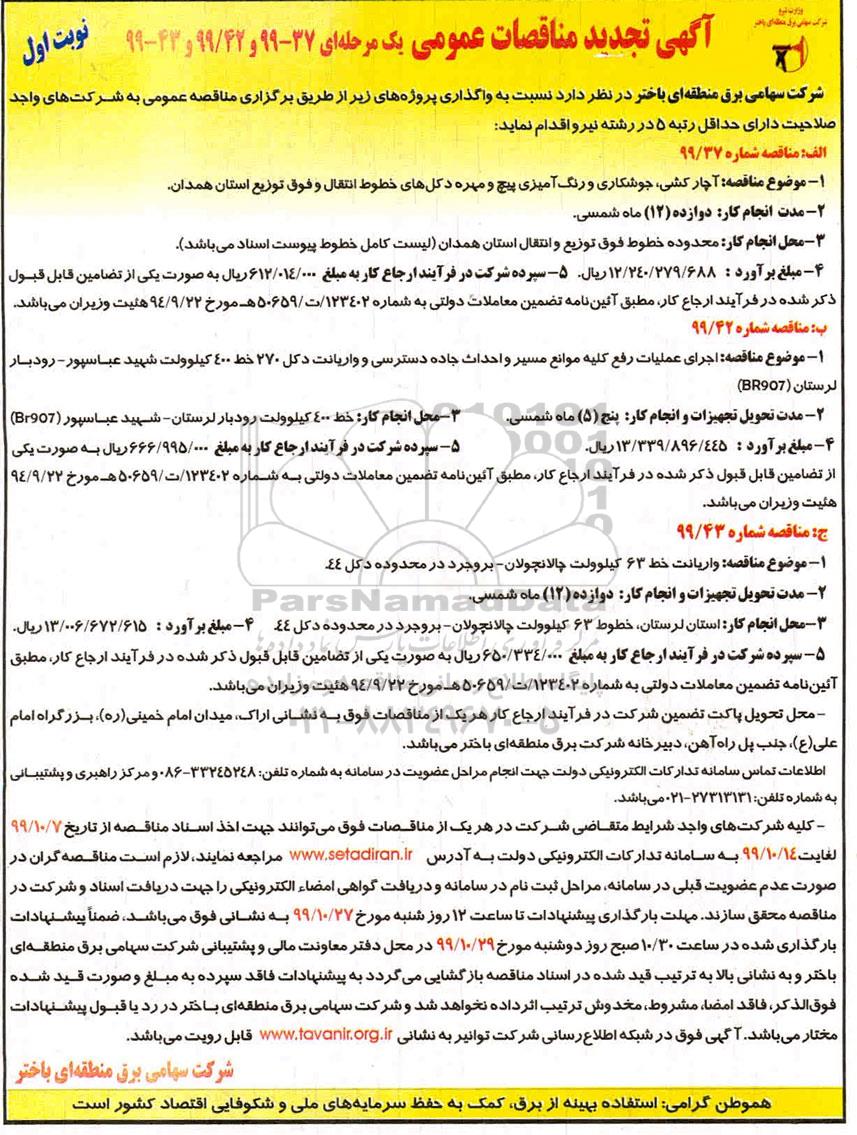 وزارت نیرو
شرکت سهامی برق منطقه‌ای باختر
آگهی تجدید مناقصات عمومی یک مرحله‌ای ۳۷-۹۹ و ۹۹/۴۲ و ۴۳-۹۹
نوبت اول
شرکت سهامی برق منطقه‌ای باختر در نظر دارد نسبت به واگذاری پروژه‌های زیر از طریق برگزاری مناقصه عمومی به شرکت‌های واجد
صلاحیت دارای حداقل رتبه ۵ در رشته نیرو اقدام نماید:
الف: مناقصه شماره ۹۹/۳۷
۱- موضوع مناقصه: آچار کشی، جوشکاری و رنگ‌آمیزی پیچ و مهره دکل‌های خطوط انتقال و فوق توزیع استان همدان.
۲- مدت انجام کار: دوازده (۱۲) ماه شمسی.
۳- محل انجام کار: محدوده خطوط فوق توزیع و انتقال استان همدان (لیست کامل خطوط پیوست اسناد می‌باشد).
۴- مبلغ برآورد : ۱۲/۲۴۰/۲۷۹/۶۸۸ ریال. ۵- سپرده شرکت در فرآیند ارجاع کار به مبلغ ۶۱۲/۰۱۴/۰۰۰ ریال به صورت یکی از تضامین قابل قبول
ذکر شده در فرآیند ارجاع کار، مطبق آئین‌نامه تضمین معاملات دولتی به شماره ۱۲۳۴۰۲/ت/۵۰۶۵۹هـ مورخ ۹۴/۹/۲۲ هئیت وزیران می‌باشد.
ب: مناقصه شماره ۹۹/۴۲
۱- موضوع مناقصه: اجرای عملیات رفع کلیه موانع مسیر و احداث جاده دسترسی و واریانت دکل ۲۷۰ خط ۴۰۰ کیلوولت شهید عباسپور- رودبار
لرستان (BR907)
۲- مدت تحویل تجهیزات و انجام کار: پنج (۵) ماه شمسی. ۳- محل انجام کار: خط ۴۰۰ کیلوولت رودبار لرستان- شهید عباسپور (Br907)
۴- مبلغ برآورد : ۱۳/۳۳۹/۸۹۶/۴۴۵ ریال. ۵- سپرده شرکت در فرآیند ارجاع کار به مبلغ ۶۶۶/۹۹۵/۰۰۰ ریال به صورت یکی
از تضامین قابل قبول ذکر شده در فرآیند ارجاع کار، مطبق آئین‌نامه تضمین معاملات دولتی به شماره ۱۲۳۴۰۲/ت/۵۰۶۵۹هـ مورخ ۹۴/۹/۲۲
هئیت وزیران می‌باشد.
ج: مناقصه شماره ۹۹/۴۳
۱- موضوع مناقصه: واریانت خط ۶۳ کیلوولت چالانچولان- بروجرد در محدوده دکل ۴۴.
۲- مدت تحویل تجهیزات و انجام کار: دوازده (۱۲) ماه شمسی.
ParsNamadData
۳- محل انجام کار: استان لرستان، خطوط ۶۳ کیلوولت چالانچولان- بروجرد در محدوده دکل ۴۴. ۴- مبلغ برآورد : ۱۳/۰۰۶/۶۷۲/۶۱۵ ریال.
۵- سپرده شرکت در فرآیند ارجاع کار به مبلغ ۶۵۰/۳۳۴/۰۰۰ ریال به صورت یکی از تضامین قابل قبول ذکر شده در فرآیند ارجاع کار، مطبق
آئین‌نامه تضمین معاملات دولتی به شماره ۱۲۳۴۰۲/ت/۵۰۶۵۹هـ مورخ ۹۴/۹/۲۲ هئیت وزیران می‌باشد.
۰۲۱-۸۸۳۴۹۶۷۰-۵
- محل تحویل پاکت تضمین شرکت در فرآیند ارجاع کار هر یک از مناقصات فوق به نشانی اراک، میدان امام خمینی(ره)، بزرگراه امام
علی(ع)، جنب پل راه‌آهن، دبیرخانه شرکت برق منطقه‌ای باختر می‌باشد.
اطلاعات تماس سامانه تدارکات الکترونیکی دولت جهت انجام مراحل عضویت در سامانه به شماره تلفن: ۳۳۲۴۵۲۴۸-۰۸۶ و مرکز راهبری و پشتیبانی
به شماره تلفن: ۲۷۳۱۳۱۳۱-۰۲۱ می‌باشد.
- کلیه شرکت‌های واجد شرایط متقاضی شرکت در هر یک از مناقصات فوق می‌توانند جهت اخذ اسناد مناقصه از تاریخ ۹۹/۱۰/۷
لغایت ۹۹/۱۰/۱۴ به سامانه تدارکات الکترونیکی دولت به آدرس www.setadiran.ir مراجعه نمایند، لازم است مناقصه‌گران در
صورت عدم عضویت قبلی در سامانه، مراحل ثبت نام در سامانه و دریافت گواهی امضاء الکترونیکی را جهت دریافت اسناد و شرکت در
مناقصه محقق سازند. مهلت بارگذاری پیشنهادات تا ساعت ۱۲ روز شنبه مورخ ۹۹/۱۰/۲۷ به نشانی فوق می‌باشد، ضمناً پیشنهادات
بارگذاری شده در ساعت ۱۰/۳۰ صبح روز دوشنبه مورخ ۹۹/۱۰/۲۹ در محل دفتر معاونت مالی و پشتیبانی شرکت سهامی برق منطقه‌ای
باختر و به نشانی بالا به ترتیب قید شده در اسناد مناقصه بازگشایی می‌گردد به پیشنهادات فاقد سپرده به مبلغ و صورت قید شده
فوق‌الذکر، فاقد امضا، مشروط، مخدوش ترتیب اثر داده نخواهد شد و شرکت سهامی برق منطقه‌ای باختر در رد یا قبول پیشنهادات
مختار می‌باشد. آگهی فوق در شبکه اطلاع‌رسانی شرکت توانیر به نشانی www.tavanir.org.ir قابل رویت می‌باشد.
شرکت سهامی برق منطقه‌ای باختر
هموطن گرامی: استفاده بهینه از برق، کمک به حفظ سرمایه‌های ملی و شکوفایی اقتصاد کشور است